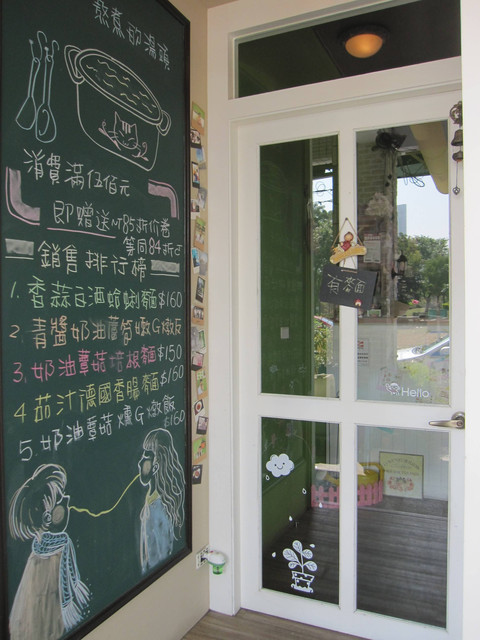 熬煮的湯頭
消費滿伍佰元
即贈送NT85折价卷
等同84折
銷售排行榜
1. 香蒜白酒蛤蜊麵$160
2. 青醬奶油蘆筍嫩G燉飯
3. 奶油蕈菇培根麵$150
4 茄汁德國香腸麵$160
5. 奶油蕈菇燻G燉飯 $160
Hello